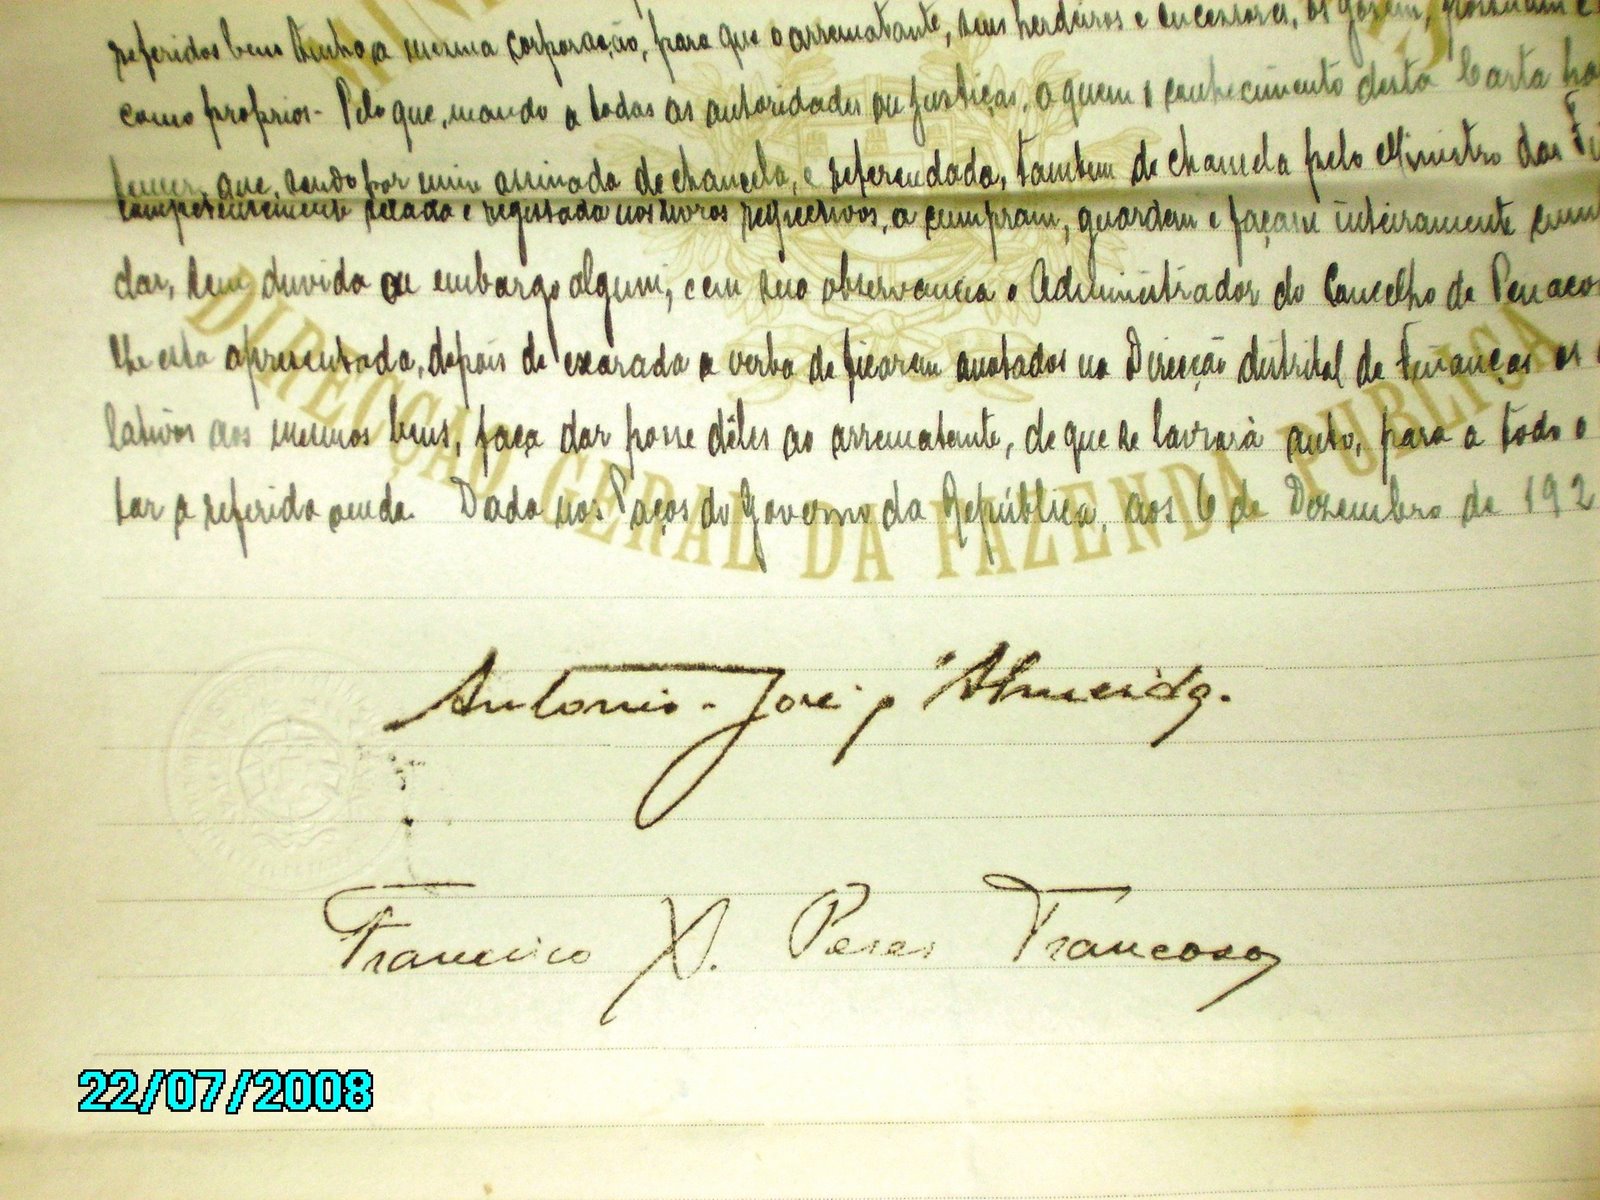 referidos bens tinha a mesma corporação, para que o arrematante, seus herdeiros e sucessores, os gozem, possuam e
como proprios - Pelo que, mando a todas as autoridades ou Justiças, a quem o conhecimento desta Carta ha
tencer, que, sendo por mim assinada de chancela, e referendada, tambem de chancela pelo Ministro das
competentemente selada e registada nos livros respectivos, a cumpram, guardem e façam inteiramente
dar, sem duvida ou embargo algum, e em sua observancia o Administrador do Concelho de Penaco
lhe esta apresentada, depois de exarada a verba de ficarem anotados na Direcção distrital de Finanças os
lativos aos mesmos bens, faça dar posse dêles ao arrematante, de que se lavrará auto, para a todo o
tar a referida venda. Dada nos Paços do Governo da República, aos 6 de Dezembro de 192
DIRECÇÃO GERAL DA FAZENDA PUBLICA
Antonio José d'Almeida.
Francisco X. Peres Trancoso
22/07/2008